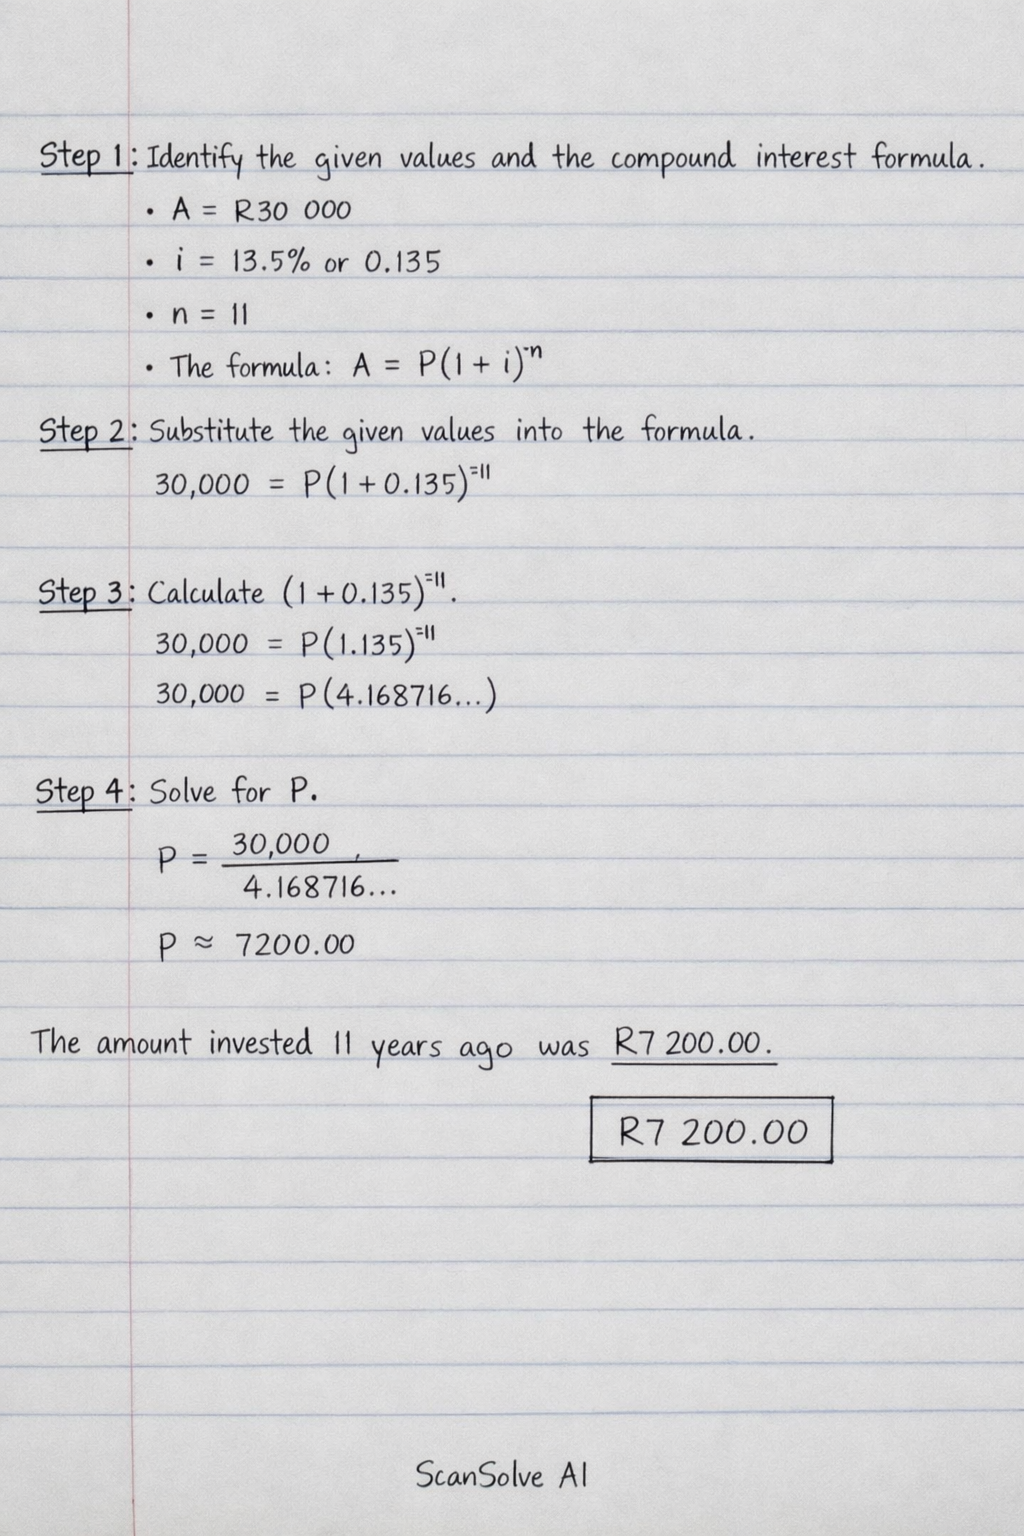 Step 1: Identify the given values and the compound interest formula.
• A = R30 000
• i = 13.5% or 0.135
• n = 11
• The formula: A = P(1 + i)⁻ⁿ
Step 2: Substitute the given values into the formula.
30,000 = P(1 + 0.135)⁼¹¹
Step 3: Calculate (1 + 0.135)⁼¹¹.
30,000 = P(1.135)⁼¹¹
30,000 = P(4.168716...)
Step 4: Solve for P.
P = 30,000
4.168716...
P ≈ 7200.00
The amount invested 11 years ago was R7 200.00.
R7 200.00
ScanSolve AI